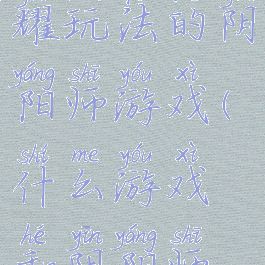 耀玩法的阴
yáng shī yóu xì
阳师游戏(
shí me yóu xì
什么游戏
hé yīn yáng shī
和阴阳师